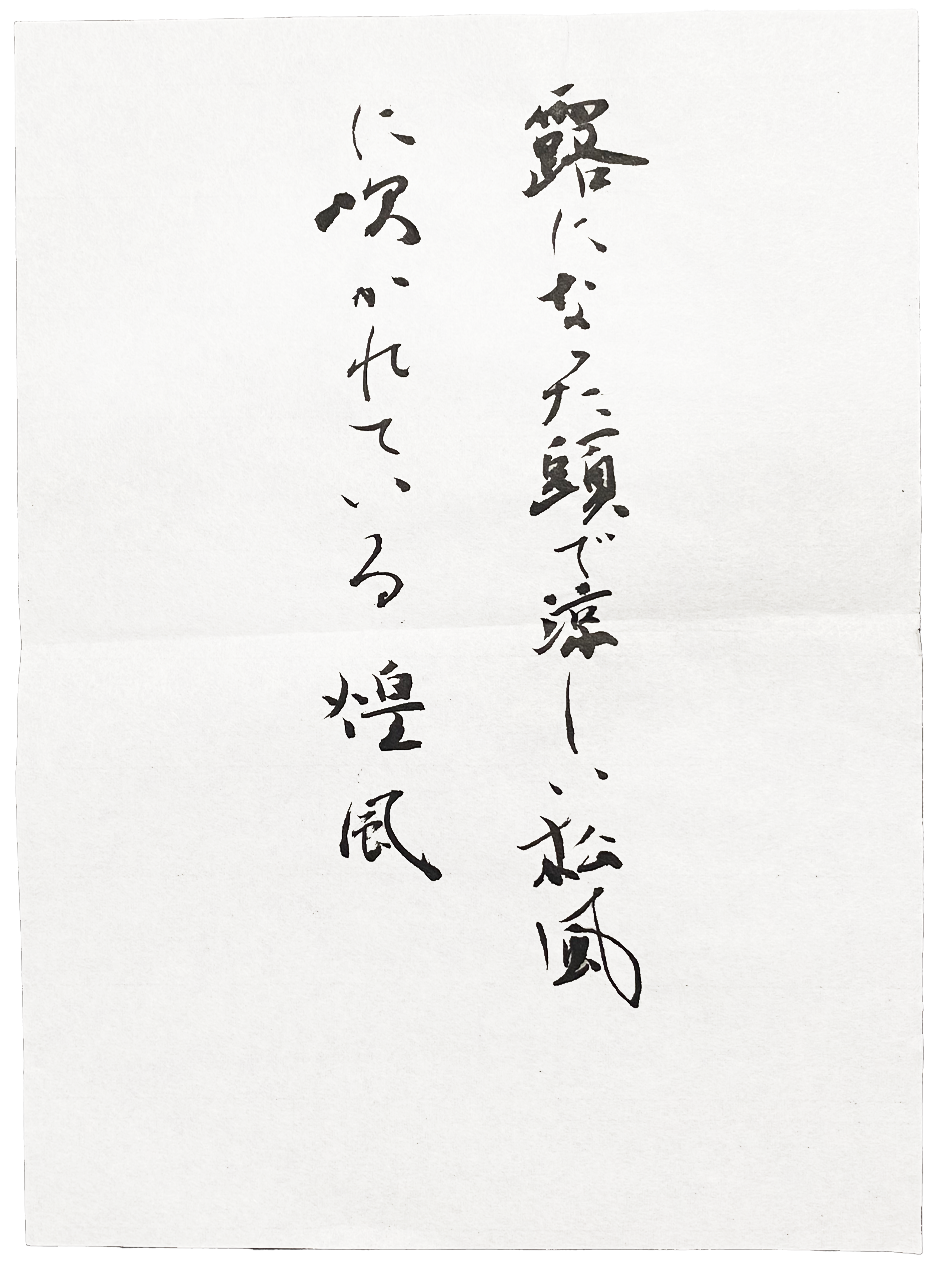 露になった頭で涼しい松風
に吹かれている 煌風